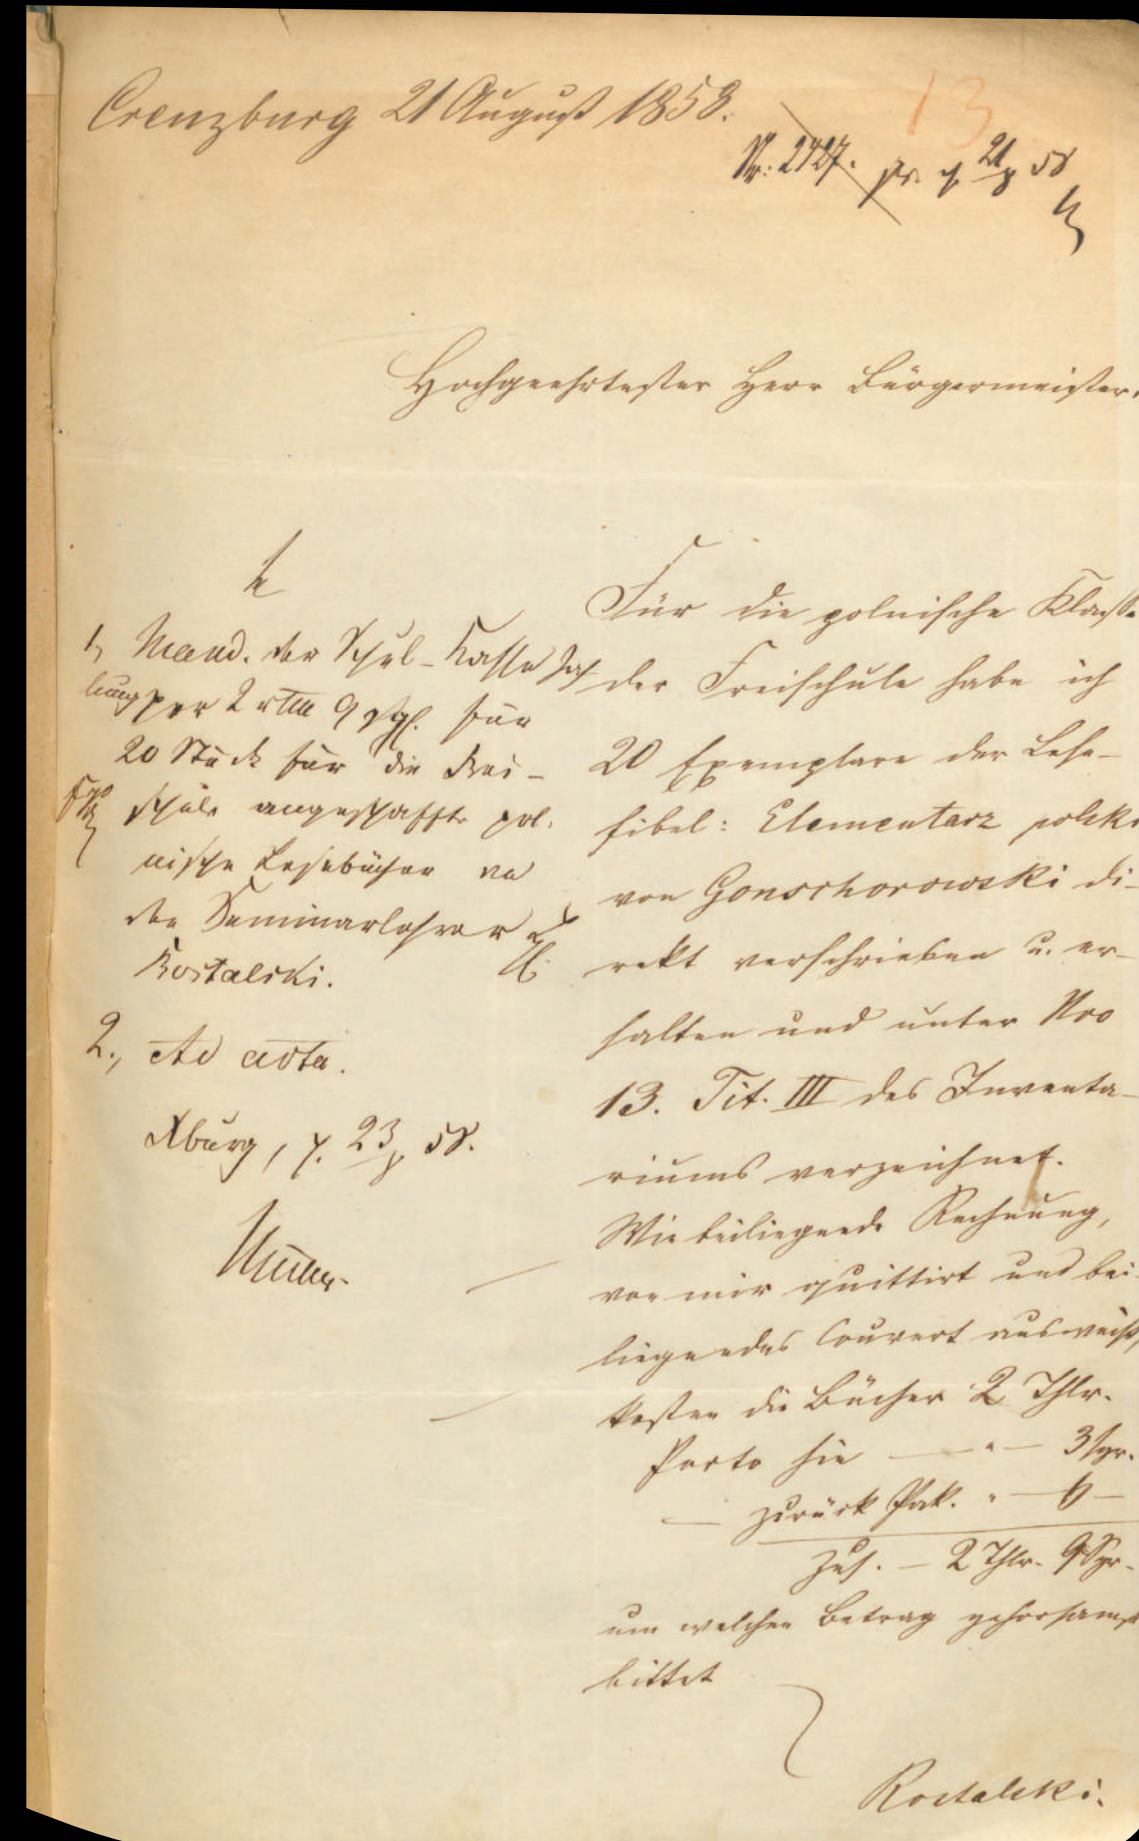 Creuzburg 21 August 1858.
13
Nr: 2427. pr. 21/8 58
Hochgeehrtester Herr Bürgermeister.
Für die polnische Klasse
der Freischule habe ich
20 Exemplare der Lese-
fibel: Elementarz polski
von Gonschorowski di-
rekt verschrieben u. er-
halten und unter Nro
13. Tit. III des Inventa-
riums verzeichnet.
Wie beiliegende Rechnung,
von mir quittirt und bei-
liegendes Couvert ausweist,
kosten die Bücher 2 Thlr.
Porto hie — " — 3 sgr.
— zurück Pak. " — 6 —
Zus. — 2 Thlr. 9 Sgr.
um welchen Betrag gehorsamst
bittet
Rostalski.
1, Mand. der Schul-Kasse Zah
lung per 2 rtlr 9 Sgl. für
20 Stück für die Frei-
schule angeschaffte pol-
nische Lesebücher an
den Seminarlehrer H.
Rostalski.
2., Ad acta.
Xburg, 23/8 58.
Müller